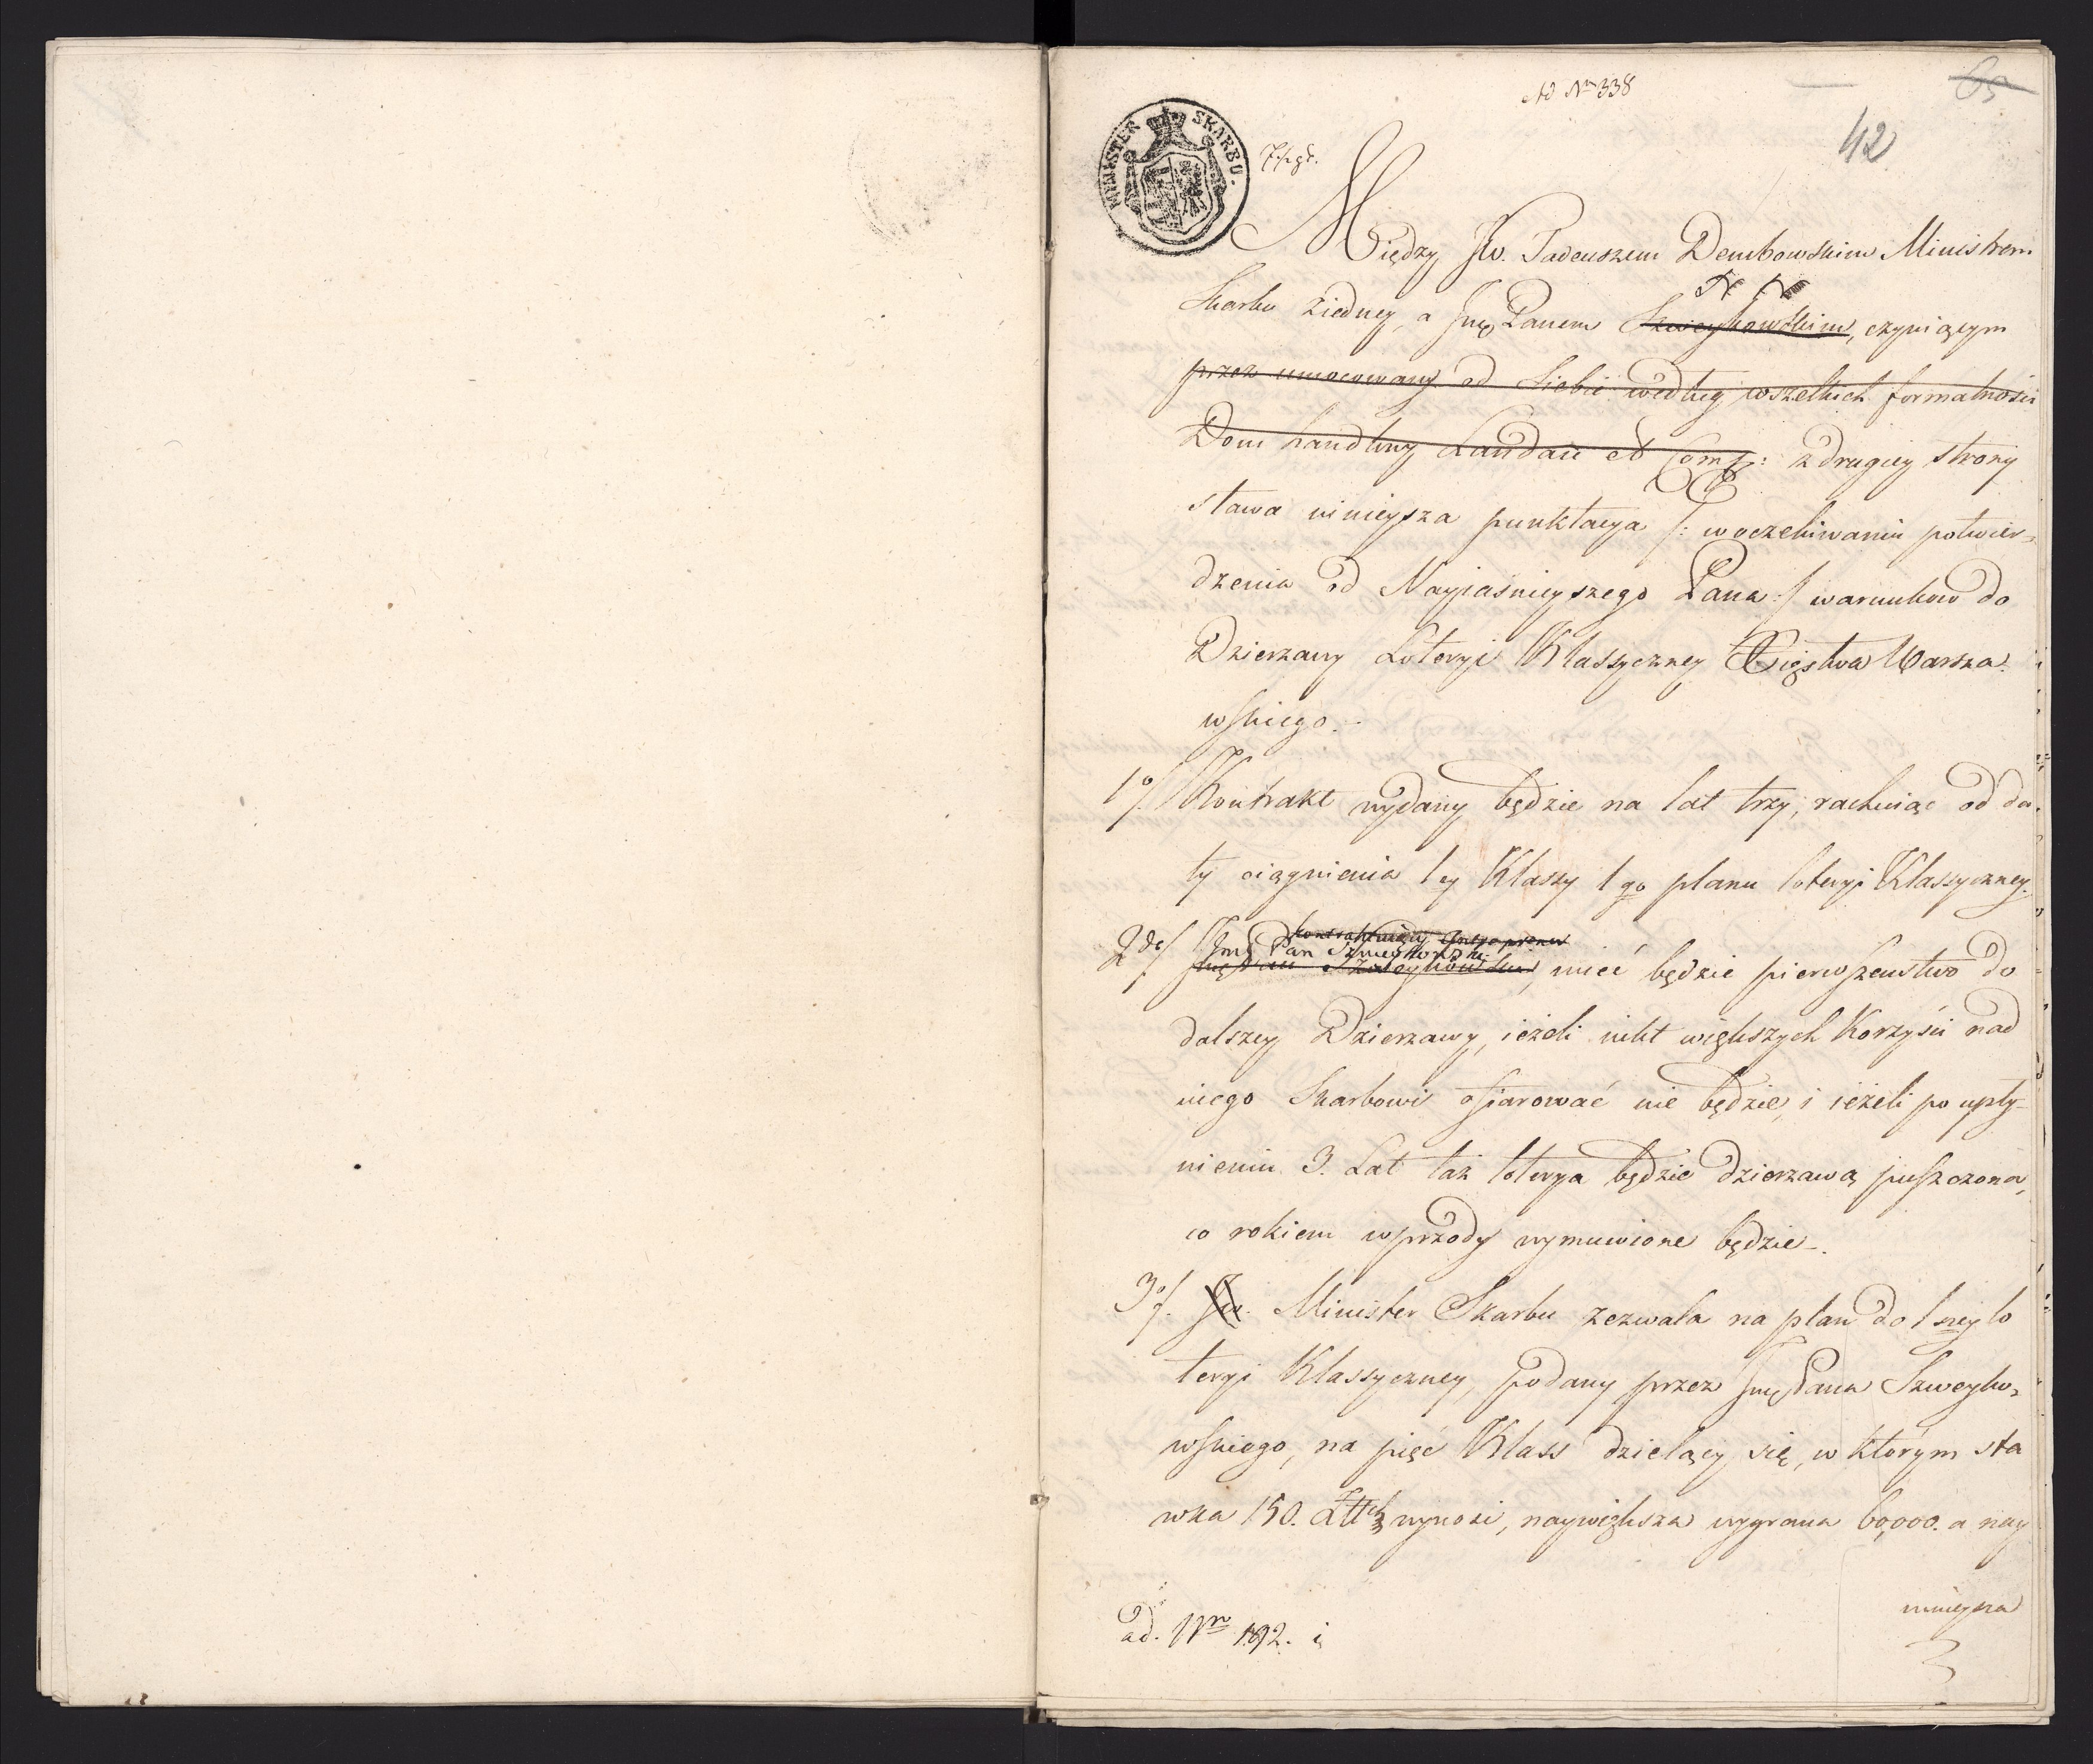 Ad Nro 338
65
42
MINISTER SKARBU.
Między JW. Tadeuszem Dembowskim Ministrem
N N
Skarbu z iedney, a Jmę Panem Szweykowskim, czyniącym
przez umocowany od siebie według wszelkich formalności
Dom handlowy Landau et Comp: z drugiey strony
stawa ninieysza punktacya /: w oczekiwaniu potwier-
dzenia od Nayiaśnieyszego Pana :/ warunkow do
Dzierzawy Loteryi Klassyczney Xięstwa Warsza-
wskiego.-
1o/ Kontrakt wydany będzie na lat trzy, rachuiąc od da-
ty ciągnienia 1ey Klassy 1go planu loteryi Klassyczney.
kontraktuiący Entreprener
Jmę Pan Szweykowski
2do/ Jmę Pan Szweykowski, mieć będzie pierwszeństwo do
dalszey Dzierzawy, ieżeli nikt większych Korzyści nad
niego Skarbowi ofiarować nie będzie, i ieżeli po upły-
nieniu 3. Lat taż loterya będzie dzierzawą puszczona,
co rokiem wprzody wymuwione będzie-.
3o/. JW. Minister Skarbu zezwala na plan do 1szey lo
teryi Klassyczney, podany przez Jmę Pana Szweyko-
wskiego, na pięć Klass dzielący się, w którym sta
wka 150. Złtch wynosi, naywiększa wygrana 60,000. a nay
mnieysza
ad. Nro 192. i